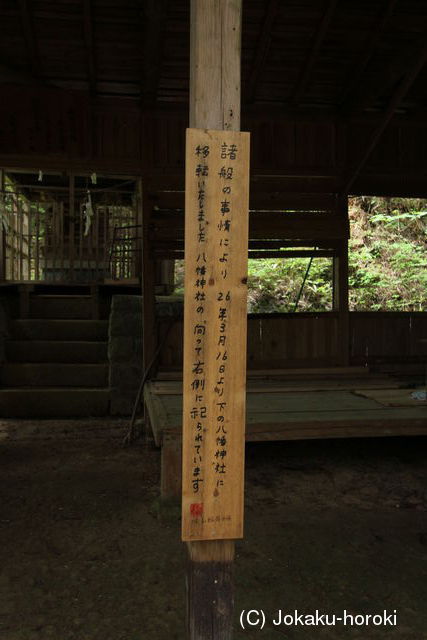 諸般の事情により 26年3月16日より下の八幡神社に
移転いたしました 八幡神社の 向って右側に祀られています
(C) Jokaku-horoki